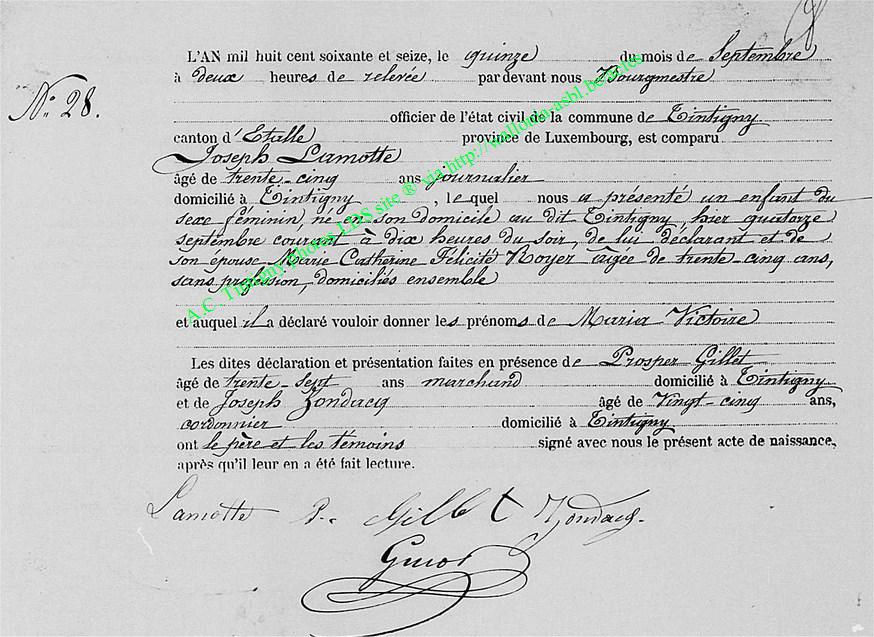 L'AN mil huit cent soixante et seize, le quinze du mois de Septembre
à deux heures de relevée par devant nous Bourgmestre
N° 28.
officier de l'état civil de la commune de Tintigny
canton d'Etalle province de Luxembourg, est comparu
Joseph Lamotte
âgé de trente-cinq ans journalier
domicilié à Tintigny, lequel nous a présenté un enfant du
sexe féminin, né en son domicile au dit Tintigny, hier quatorze
septembre courant à dix heures du soir, de lui déclarant et de
son épouse Marie Catherine Félicité Noyer âgée de trente cinq ans,
sans profession, domiciliés ensemble
et auquel il a déclaré vouloir donner les prénoms de Maria Victoire
Les dites déclaration et présentation faites en présence de Prosper Gillet
âgé de trente-sept ans marchand domicilié à Tintigny
et de Joseph Zondacq âgé de Vingt-cinq ans,
cordonnier domicilié à Tintigny
ont le père et les témoins signé avec nous le présent acte de naissance,
après qu'il leur en a été fait lecture.
Lamotte P. Gillet Zondacq.
A.C. Tintigny photos LDS site ® via http://wallonia-asbl.be/actes